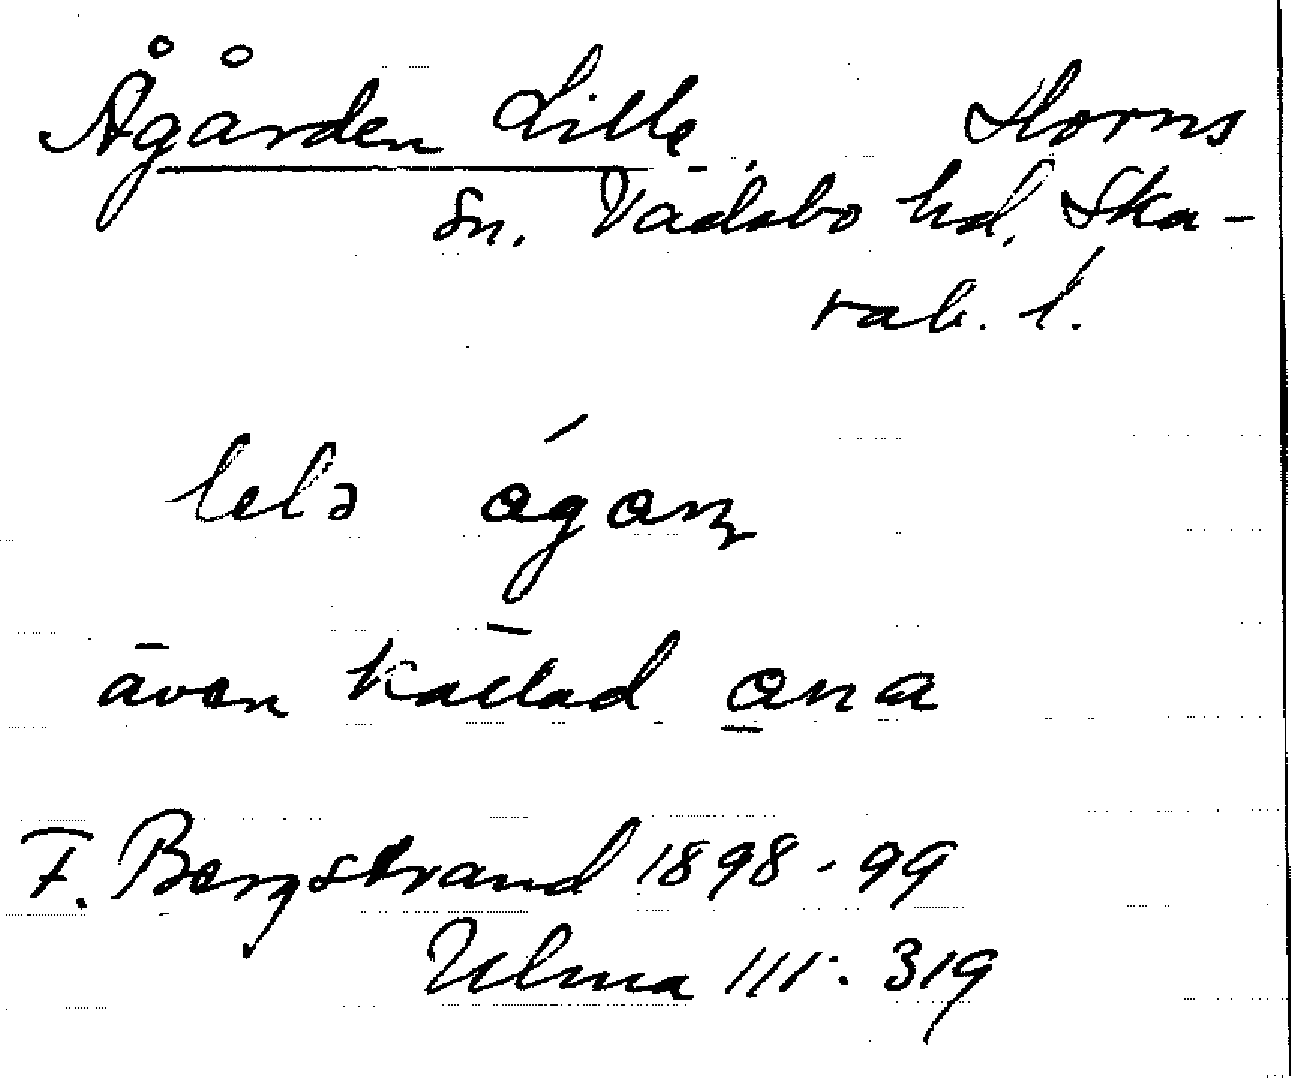 Ågården Lille, Horns
sn. Vadsbo hd. Ska-
rab. l.
lelə ágaṇ
även kallad a̲na
F. Bergstrand 1898-99
Ulma 111:319